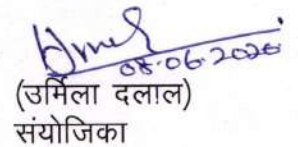 08-06-2026
(उर्मिला दलाल)
संयोजिका